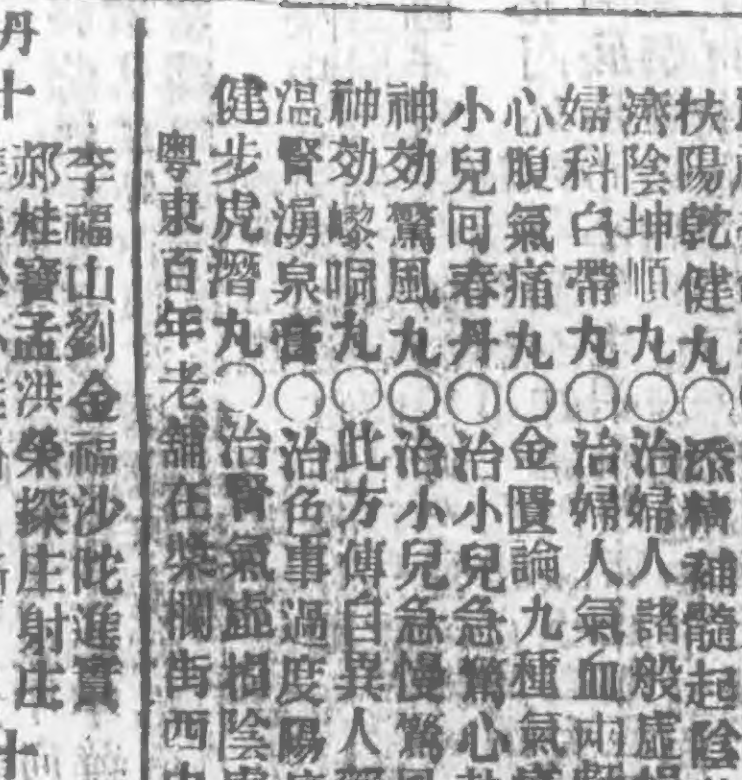 扶陽乾健丸○添精補髓起陰
濟陰坤順丸○治婦人諸般虛
婦科白帶丸○治婦人氣血兩
心腹氣痛丸○金匱論九種氣
小兒回春丹○治小兒急驚心
神効驚風丸○治小兒急慢驚
神効嚟啁丸○此方傳自異人
温腎湧泉膏○治色事過度陽
健步虎潛丸○治腎氣虛損陰
粤東百年老舖在槳欄街西
李福山劉金福沙陀進寶
郝桂寶孟洪榮探庄射庄
丹十